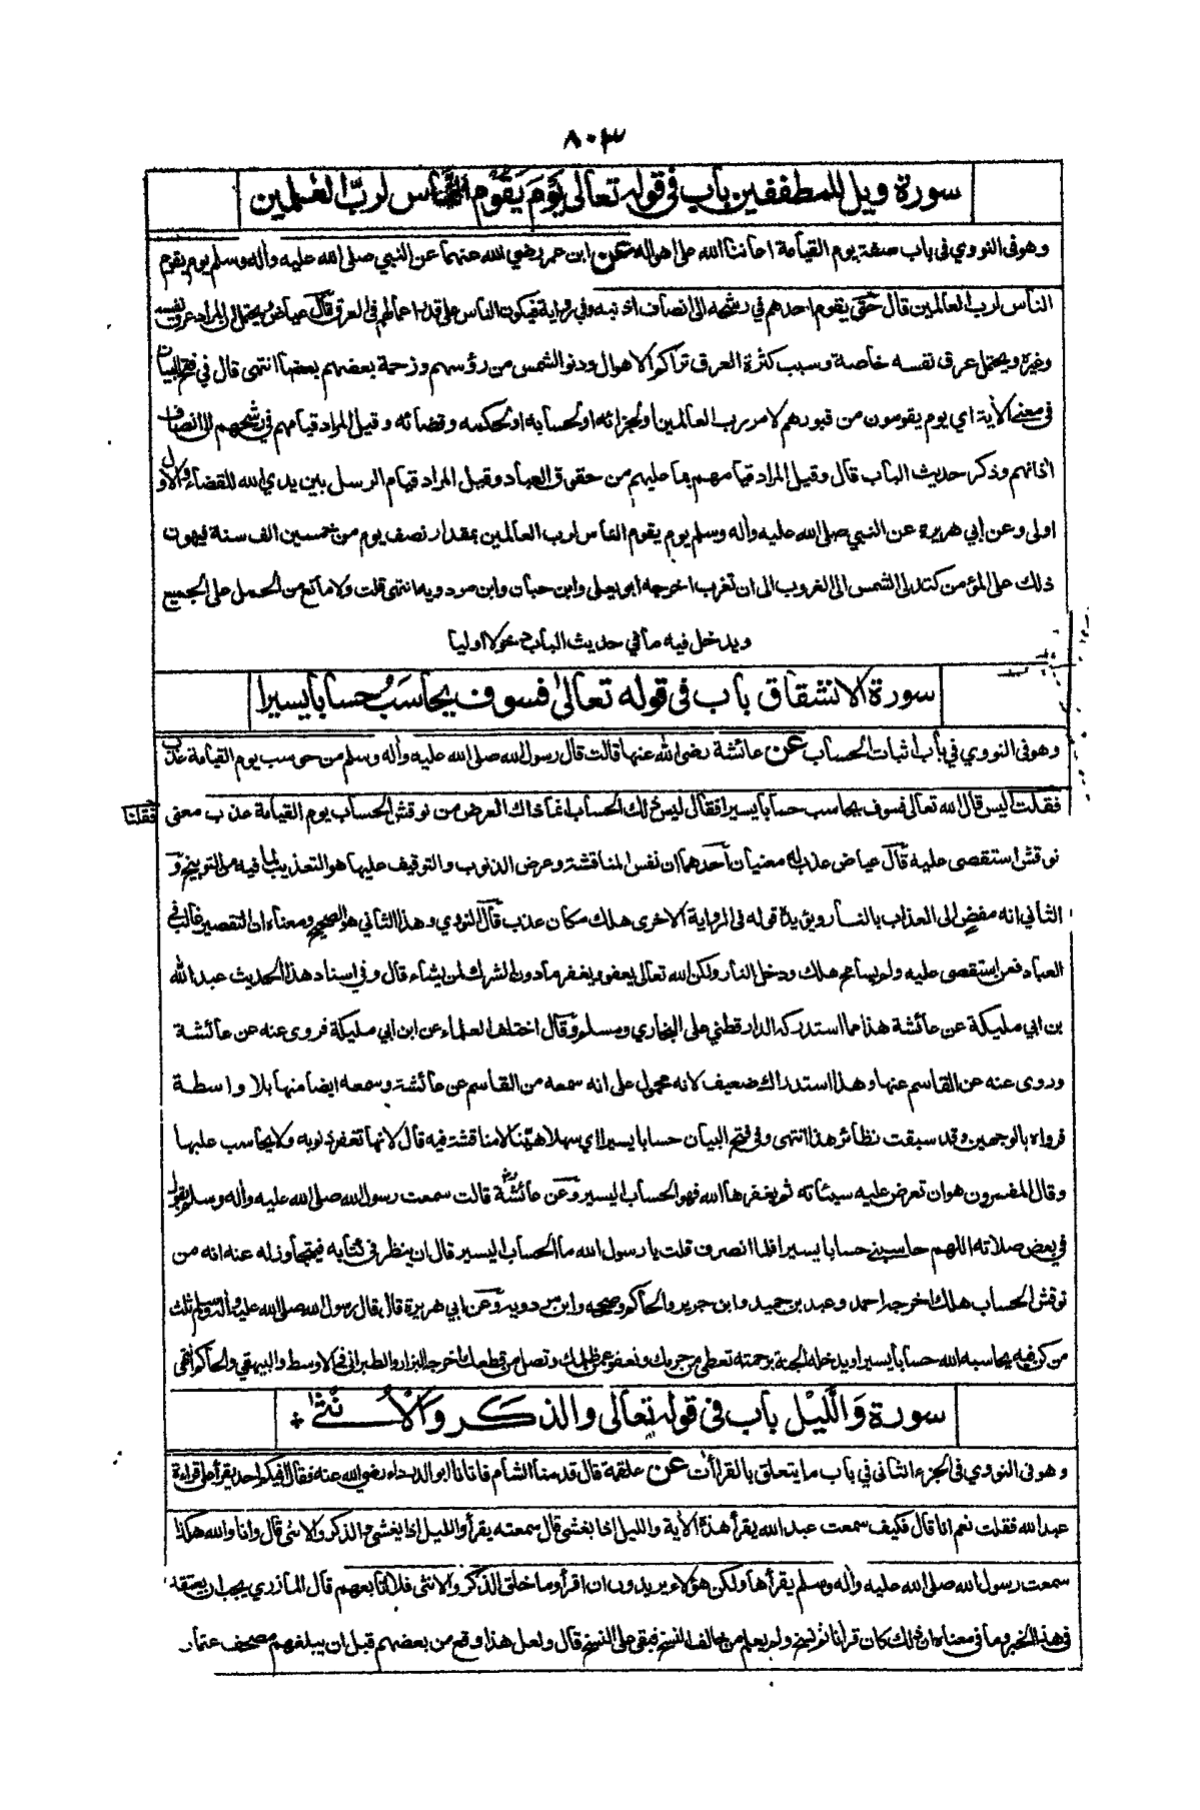 ٨٠٣
سورة ويل للمطففين باب في قوله تعالى يَوْمَ يَقُوْمُ النَّاس لربّ العٰلمين
وهو في النووي في باب صفة يوم القيامة اعاننا الله على اهواله عن ابن عمر رضي الله عنهما عن النبي صلى الله عليه واله وسلم يوم يقوم
الناس لرب العالمين قال حتى يقوم احدهم في رشحه الى انصاف اذنيه وفي رواية فيكون الناس على قدر اعمالهم في العرق قال عياض يحتمل ان المراد عرق نفسه
وغيره ويحتمل عرق نفسه خاصة وسبب كثرة العرق تراكم الاهوال ودنو الشمس من رؤسهم وزحمة بعضهم بعضا انتهى قال في فتح البيان
في معنى الأية اي يوم يقومون من قبورهم لامر رب العالمين او لجزائه او لحسابه او لحكمه وقضائه وقيل المراد قيامهم في رشحهم الى انصاف
اذانهم وذكر حديث الباب قال وقيل المراد قيامهم بما عليهم من حقوق العباد وقيل المراد قيام الرسل بين يدي الله للقضاء والاول
اولى وعن ابي هريرة عن النبي صلى الله عليه واله وسلم يوم يقوم الناس لرب العالمين بمقدار نصف يوم من خمسين الف سنة فيهون
ذلك على المؤمن كتدلى الشمس الى الغروب الى ان تغرب اخرجه ابو يعلى وابن حبان وابن مردويه انتهى قلت ولا مانع من الحمل على الجميع
ويدخل فيه ما في حديث الباب دخولا اوليا
سورة الانشقاق باب في قوله تعالىٰ فسوف يحاسَبُ حسابا يسيرا
وهو في النووي في باب اثبات الحساب عن عائشة رضي الله عنها قالت قال رسول الله صلى الله عليه واله وسلم من حوسب يوم القيامة عذب
فقلت اليس قال الله تعالى فسوف يحاسب حسابا يسيرا فقال ليس ذلك الحساب انما ذاك العرض من نوقش الحساب يوم القيامة عذب معنى
فقلنا
نوقش استقصى عليه قال عياض عذب له معنيان احدهما ان نفس المناقشة وعرض الذنوب والتوقيف عليها هو التعذيب لما فيه من التوبيخ و
الثاني انه مفضٍ الى العذاب بالنار ويؤيده قوله في الرواية الاخرى هلك مكان عذب قال النووي وهذا الثاني هو الصحيح ومعناه ان التقصير غالب في
العباد فمن استقصى عليه ولم يسامح هلك ودخل النار ولكن الله تعالى يعفو ويغفر مادون الشرك لمن يشاء قال وفي اسناد هذا الحديث عبد الله
بن ابي مليكة عن عائشة هذا مما استدركه الدارقطني على البخاري ومسلم وقال اختلف العلماء عن ابن ابي مليكة فروى عنه عن عائشة
وروى عنه عن القاسم عنها وهذا استدراك ضعيف لانه محمول على انه سمعه من القاسم عن عائشة وسمعه ايضا منها بلا واسطة
فرواه بالوجهين وقد سبقت نظائر هذا انتهى وفي فتح البيان حسابا يسيرا اي سهلا هيّنا لا مناقشة فيه قال لانها تغفر ذنوبه ولا يحاسب عليها
وقال المفسرون هو ان تعرض عليه سيئاته ثم يغفرها الله فهو الحساب اليسير وعن عائشة قالت سمعت رسول الله صلى الله عليه واله وسلم يقول
في بعض صلاته اللهم حاسبني حسابا يسيرا فلما انصرف قلت يا رسول الله ما الحساب اليسير قال ان ينظر في كتابه فيتجاوز له عنه انه من
نوقش الحساب هلك اخرجه احمد وعبد بن حميد وابن جرير والحاكم وصححه وابن مردويه وعن ابي هريرة قال قال رسول الله صلى الله عليه واله وسلم ثلث
من كن فيه يحاسبه الله حسابا يسيرا ويدخله الجنة برحمته تعطي من حرمك وتعفو عمن ظلمك وتصل من قطعك اخرجه البزار والطبراني في الاوسط والبيهقي والحاكم انتهى
سورة وَالَّليْل باب في قوله تعالى والذكر وَالْأُنثىٰ
وهو في النووي في الجزء الثاني في باب ما يتعلق بالقرأت عن علقمة قال قدمنا الشام فاتانا ابو الدرداء رضي الله عنه فقال افيكم احد يقرأ على قراءة
عبد الله فقلت نعم انا قال فكيف سمعت عبد الله يقرأ هذه الأية والليل اذا يغشى قال سمعته يقرأ والليل اذا يغشى والذكر والانثى قال وانا والله هكذا
سمعت رسول الله صلى الله عليه واله وسلم يقرأها ولكن هؤلاء يريدون ان اقرأ وما خلق الذكر والانثى فلا اتابعهم قال المازري يجب ان يعتقد
في هذا الخبر وما في معناه ان ذلك كان قرانا ثم نسخ ولم يعلم من خالف النسخ فبقي على النسخ قال ولعل هذا وقع من بعضهم قبل ان يبلغهم مصحف عثمان